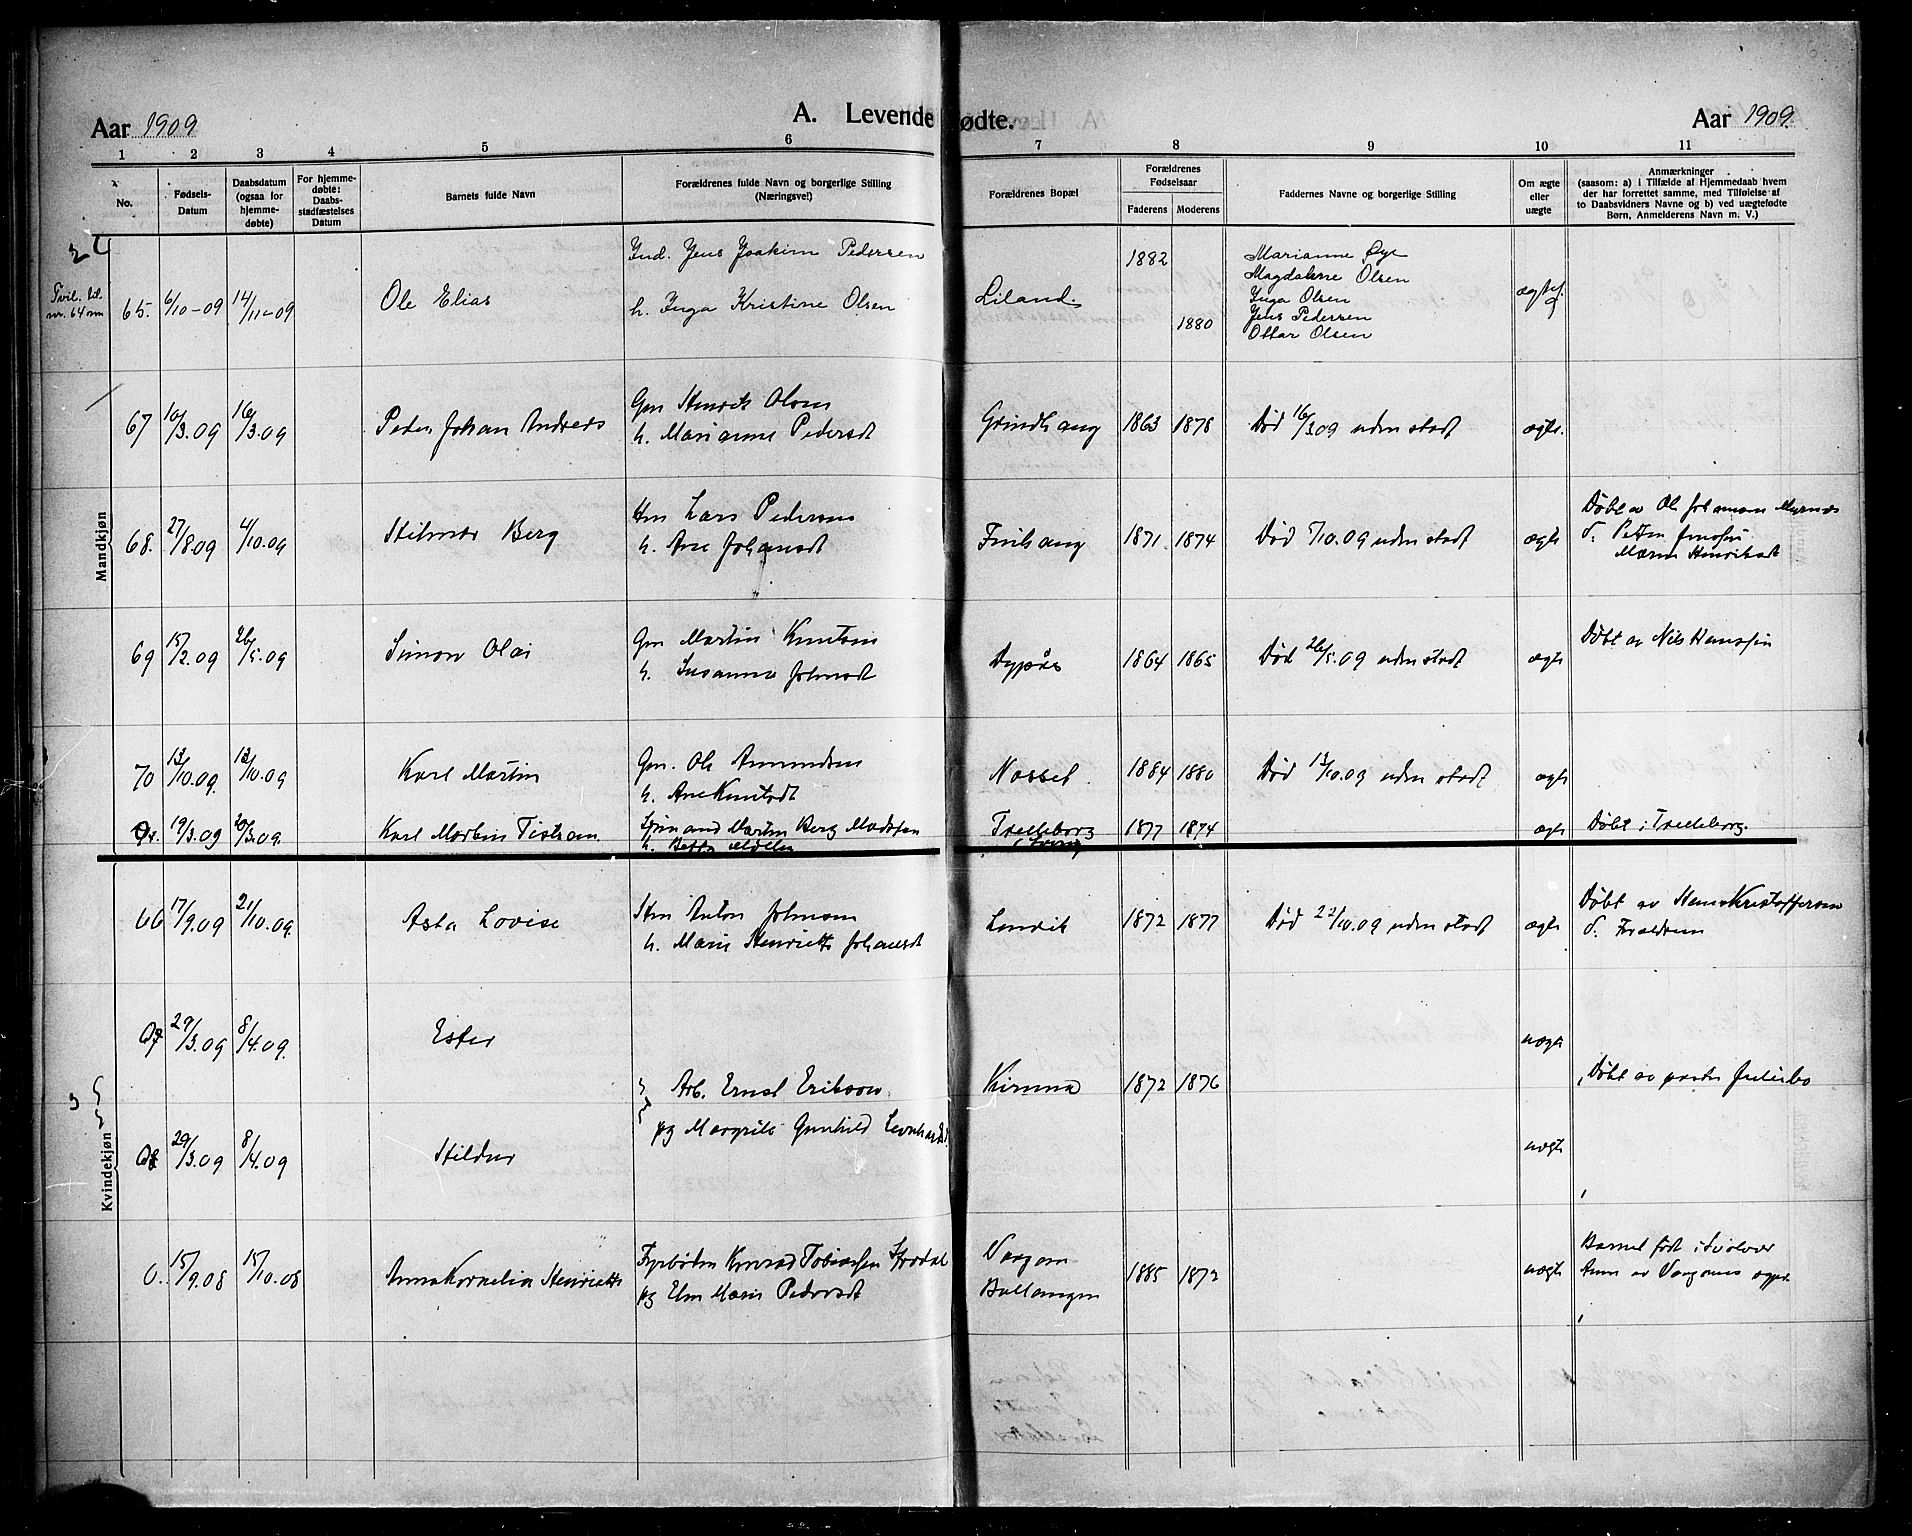 Aar 1909
A. Levende fødte.
Aar 1909.
1 2 3 4 5 6 7 8 9 10 11
No.
Fødsels-
Datum
Daabsdatum
(ogsaa for
hjemme-
døbte)
For hjemme-
døbte:
Daabs-
stadfæstelses
Datum
Barnets fulde Navn
Forældrenes fulde Navn og borgerlige Stilling
(Næringsvei)
Forældrenes Bopæl
Forældrenes
Fødselsaar
Faderens Moderens
Faddernes Navne og borgerlige Stilling
Om ægte
eller
uægte
Anmærkninger
(saasom: a) i Tilfælde af Hjemmedaab hvem
der har forrettet samme, med Tilføielse af
to Daabsvidners Navne og b) ved uægtefødte
Børn, Anmelderens Navn m. V.)
Mandkjøn
2
Tvil. til
nr. 64
65. 6/10-09 14/11-09
Ole Elias
Ind. Jens Joakim Pedersen
h. Inga Kristine Olsen
Liland.
1882
1880
Marianne Øye
Magdalene Olsen
Inga Olsen
Jens Pedersen
Ottar Olsen
ægtef.
67 10/3.09 16/3.09
Peder Johan Andreas
Gm Henrik Olsen
h. Marianne Pedersdt
Grindhaug
1863 1878
Død 16/3.09 uden stadf
ægte.
68. 27/8.09 4/10.09
Hilmar Berg
Lars Pedersen
h. Ane Johansdt
1871. 1874
Død 7/10.09 uden stadf
ægte
Døbt av Ole Johansen
69 15/2.09 26/5.09
Simon Olai
Gm Martin Knutsen
h. Susanna
Dypaas
1864 1865
Død 26/5.09 uden stadf
ægte
Døbt av Nils Hanssen
70 13/10.09. 13/10.09
Karl Martin
Gm. Ole Amundsen
h. Ane Knutsdt
1884 1880
Død 13/10.09 uden stadf
ægte
19/3.09 20/3.09.
Karl Morten Tistram
Morten Berg Madssen
h. Betty
Trelleborg
1877 1874
ægte
Døbt i Trelleborg.
Kvindekjøn
66 17/9.09 21/10.09.
Asta Lovise
Hm Anton Johnsen
h. Marie Henriette Johansdt
Lenvik
1872 1877
Død 22/10.09 uden stadf
ægte
Døbt av Hans Kristoffersen
Forældrene
29/3.09 8/4.09.
Ester
uægte
Arb. Ernst Eriksson
pg Margrete Gunhild
Kiruna
1872 1876
Døbt av pastor
3
29/3.09 8/4.09
Hildur
uægte
0. 15/9.08 15/10.08
Anna Kornelia Henriette
Konrad Tobiassen
pg Marie Pedersdt
Vaagan
Ballangen
1885 1872
uægte
Barnet født i Svolvær